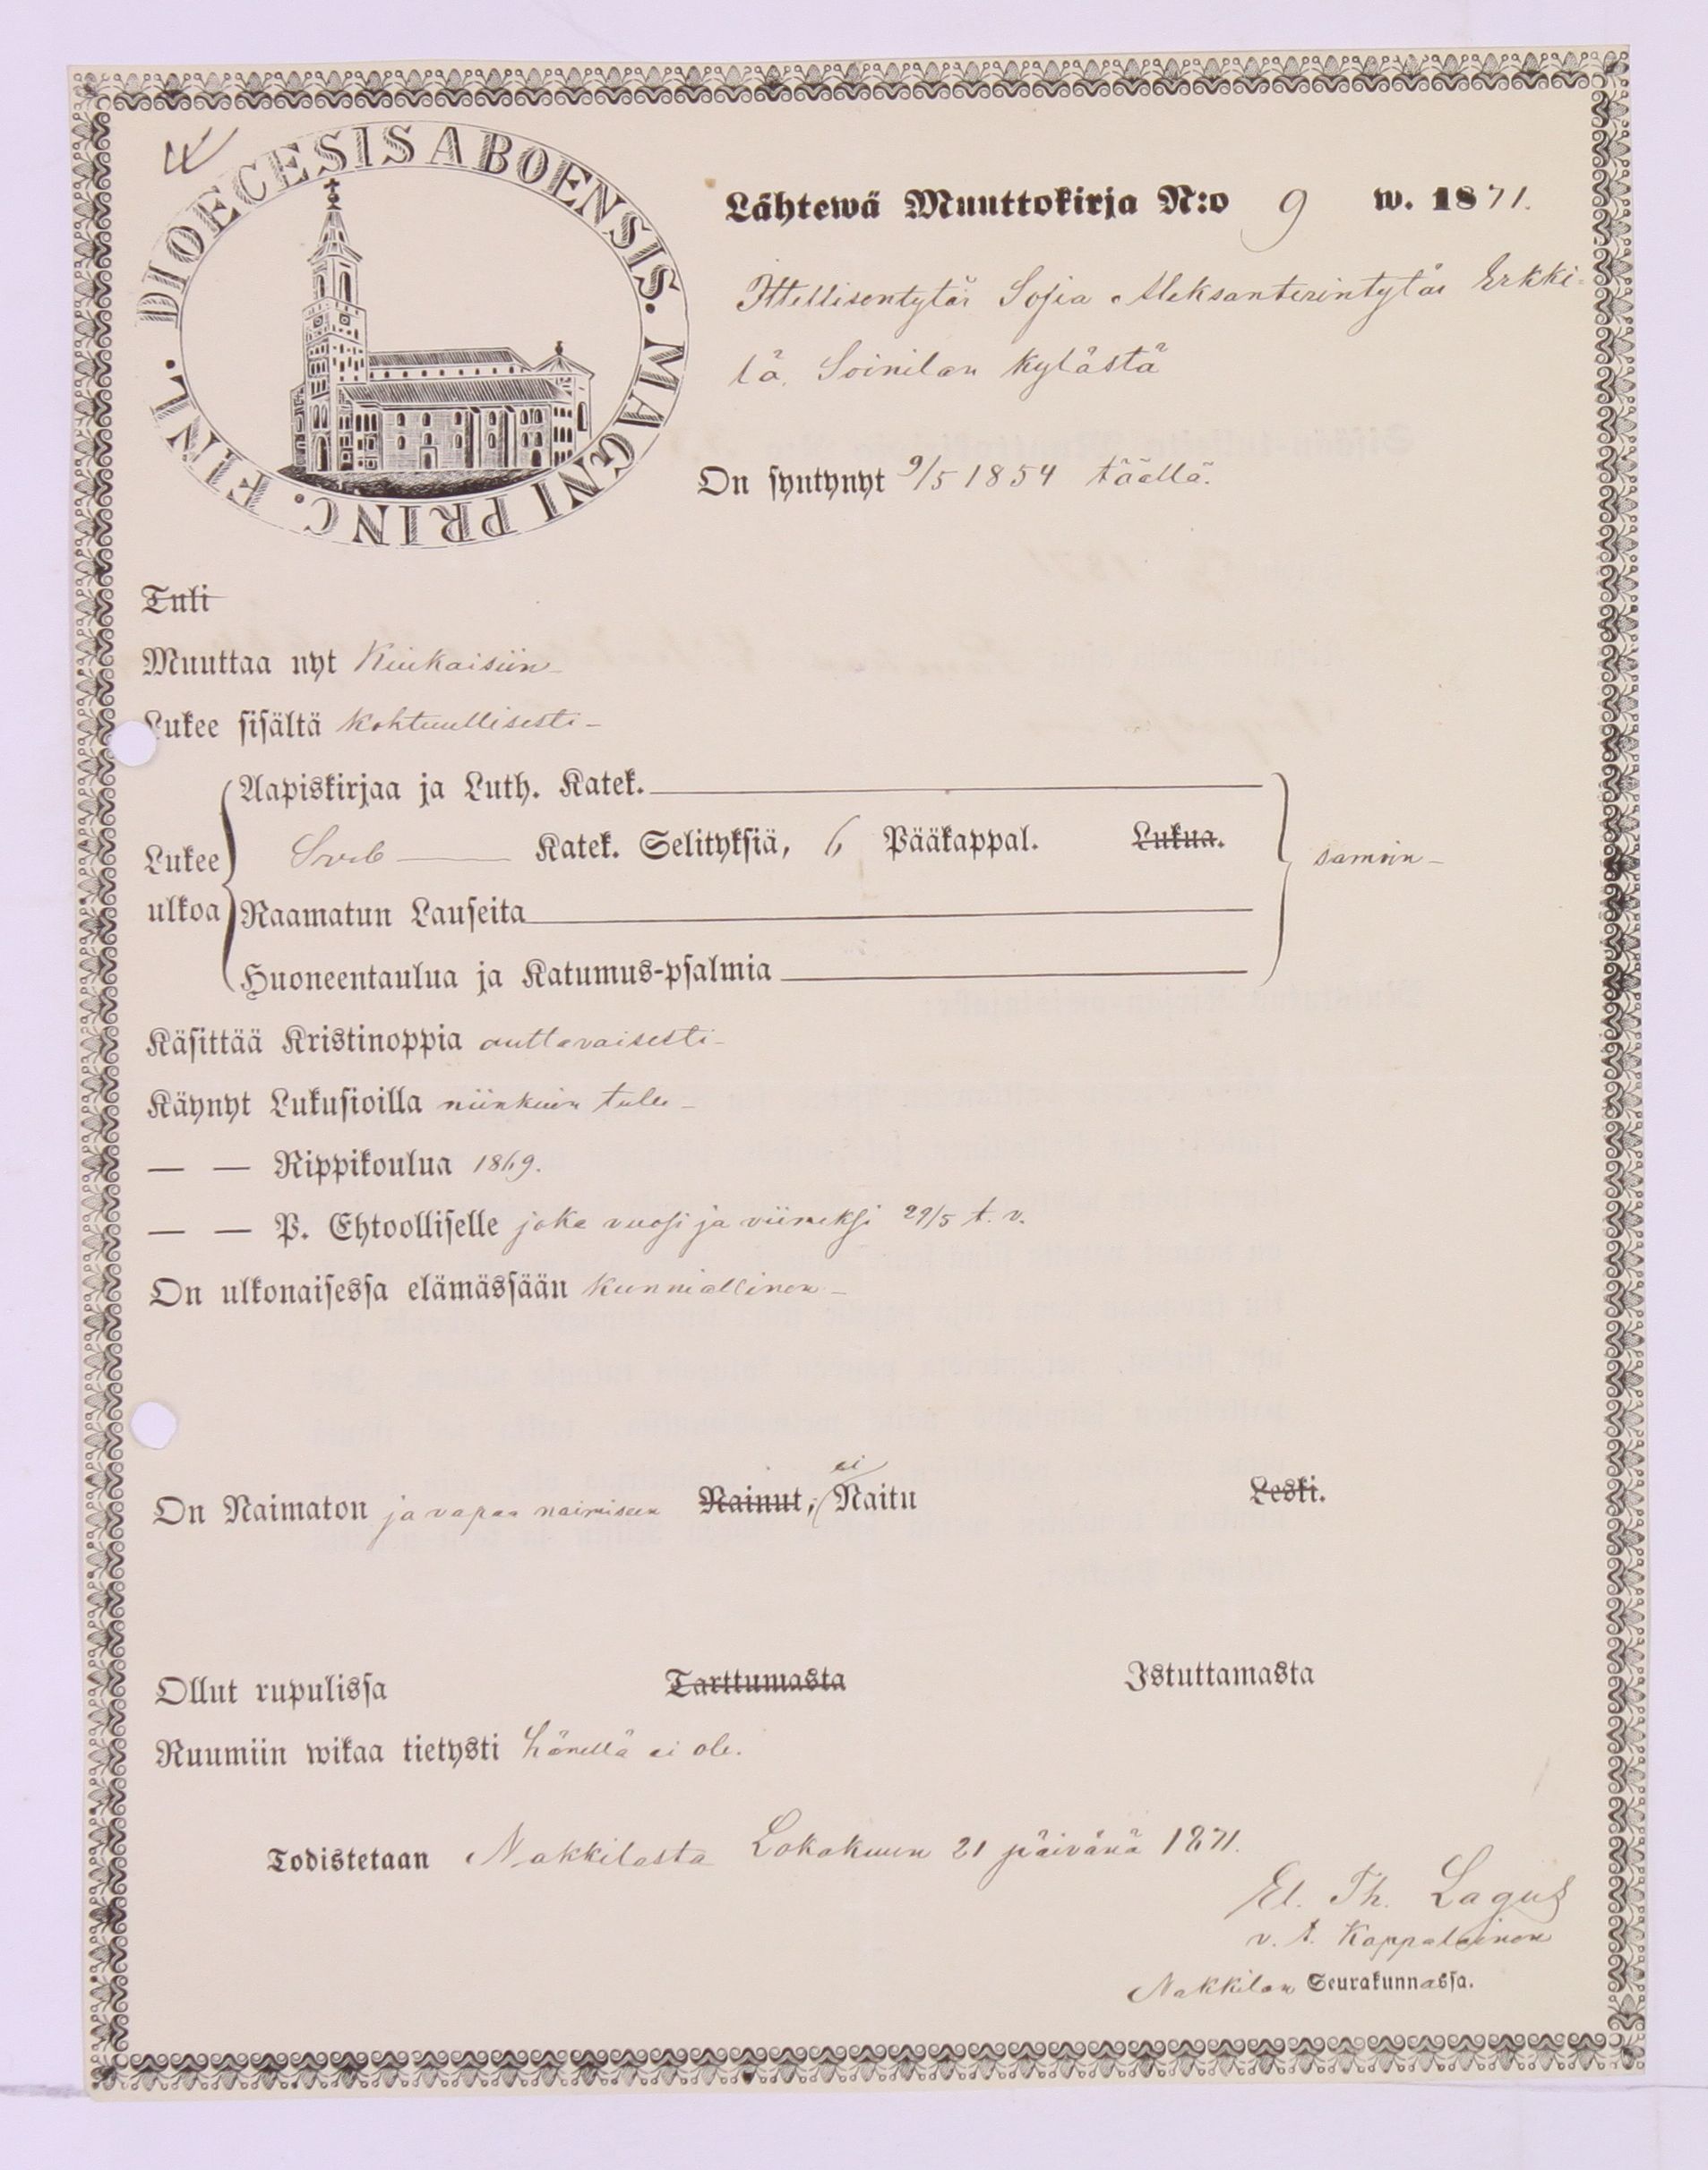 DIOECESIS ABOENSIS. MAGNI PRINC. FINL.
Lähtewä Muuttokirja N:o 9 w. 1871.
Ittellisentytär Sofia Aleksanterintytär Erkki-
lä, Soinilan kylästä
On syntynyt 9/5 1854 täällä.
Tuli
Muuttaa nyt Kiukaisiin
Lukee sisältä kohtuullisesti
Aapiskirjaa ja Luth. Katek.
Lukee Sveb Katek. Selityksiä, 6 Pääkappal. Lukua. samoin
ulkoa Raamatun Lauseita
Huoneentaulua ja Katumus-psalmia
Käsittää Kristinoppia auttavaisesti
Käynyt Lukusioilla niinkuin tulee
— — Rippikoulua 1869.
— — P. Ehtoolliselle joka vuosi ja viimeksi 29/5 t. v.
On ulkonaisessa elämässään kunniallinen
ei
On Naimaton ja vapaa naimiseen Nainut, Naitu Leski.
Ollut rupulissa Tarttumasta Istuttamasta
Ruumiin wikaa tietysti hänellä ei ole.
Todistetaan Nakkilasta Lokakuun 21 päivänä 1871.
El. Th. Lagus
v. t. Kappalainen
Nakkilan Seurakunnassa.